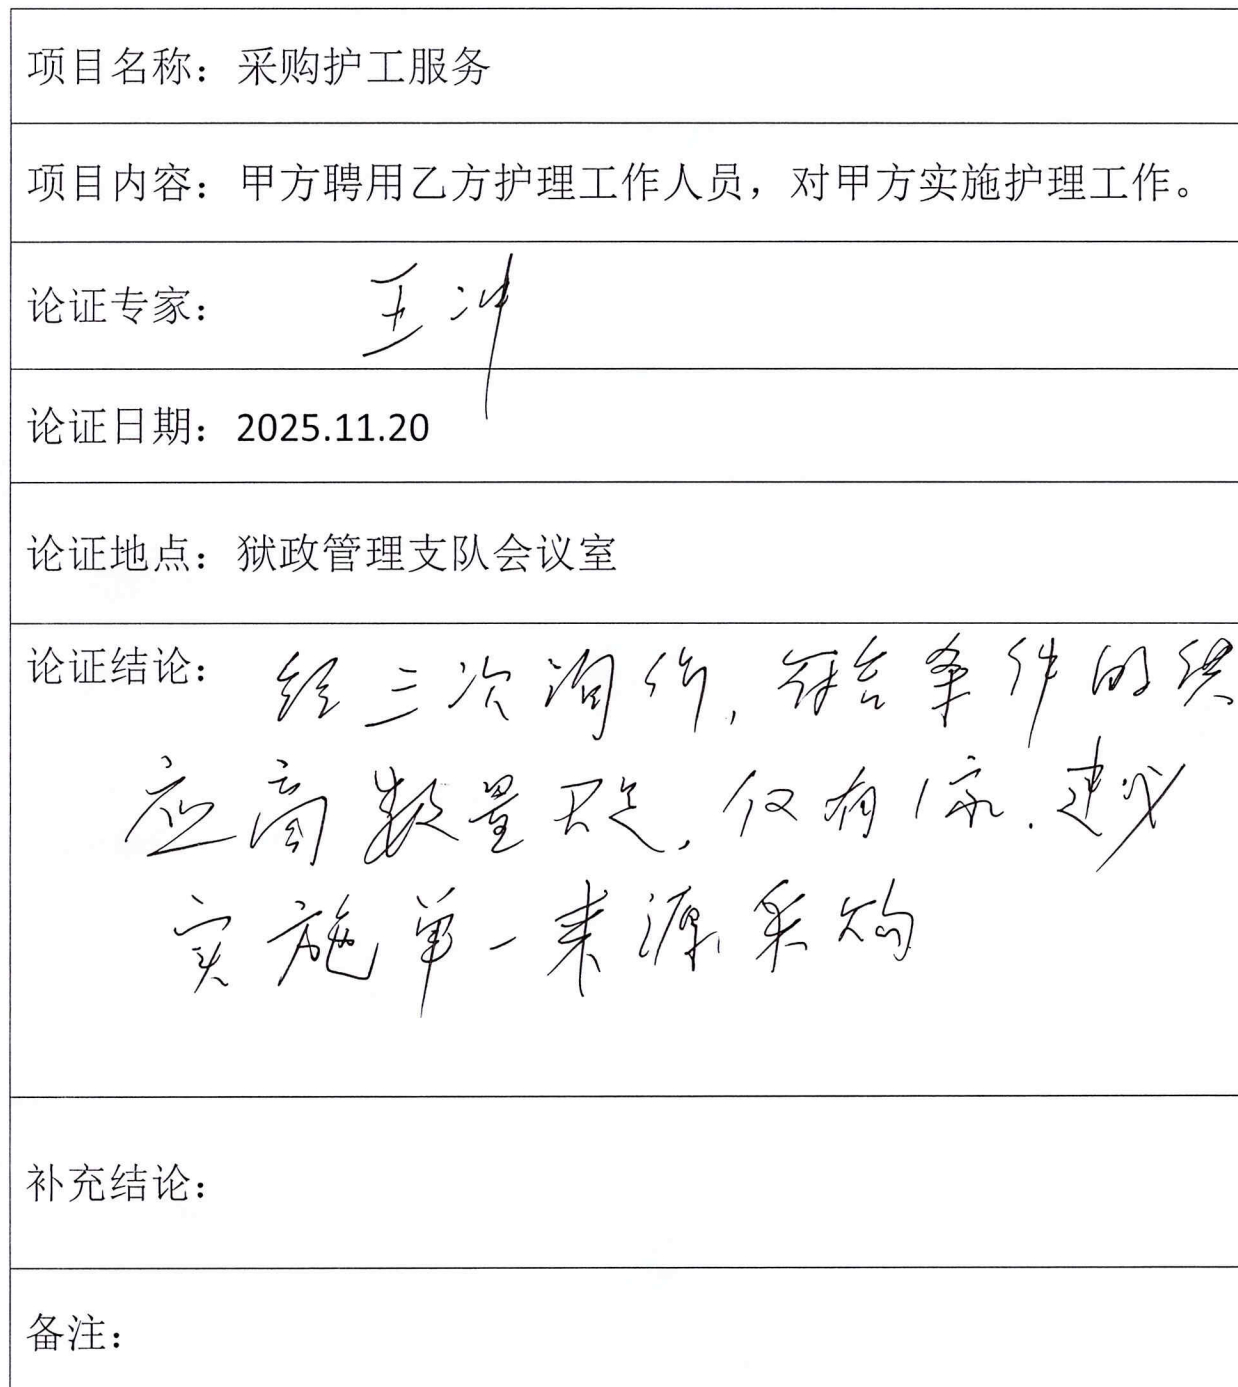 项目名称：采购护工服务
项目内容：甲方聘用乙方护理工作人员，对甲方实施护理工作。
论证专家：王冲
论证日期：2025.11.20
论证地点：狱政管理支队会议室
论证结论：经三次询价，符合条件的供
应商数量不足，仅有1家.建议
实施单一来源采购
补充结论：
备注：